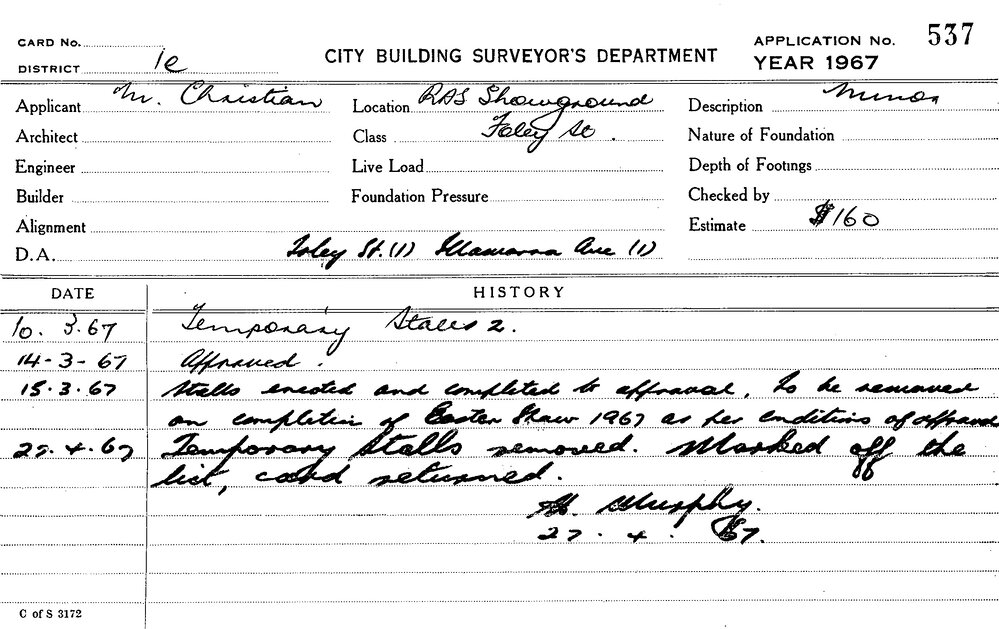 CARD No.
DISTRICT 1e
CITY BUILDING SURVEYOR'S DEPARTMENT
APPLICATION No. 537
YEAR 1967
Applicant M. Christian
Location RAS Showground
Description Minor
Architect
Class Foley St.
Nature of Foundation
Engineer
Live Load
Depth of Footings
Builder
Foundation Pressure
Checked by
Alignment
Estimate $160
D.A. Foley St. (1) Illawarra Ave (1)
DATE HISTORY
10.3.67 Temporary Stalls 2.
14-3-67 Approved.
15.3.67 Stalls erected and completed to approval. To be removed
on completion of Easter Show 1967 as per conditions of approval
27.4.67 Temporary Stalls removed. Marked off the
list, card returned.
Murphy.
27.4.67.
C of S 3172